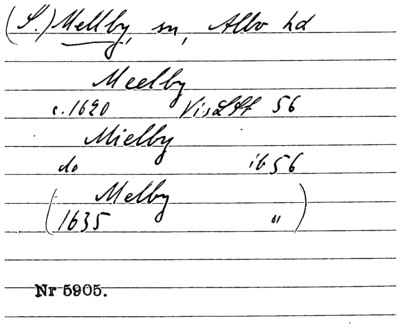 (S.) Mellby, sn, Albo hd
Meelby
c. 1620 VisLSt 56
Mielby
do ib 56
(Melby
1635 ")
Nr 5905.